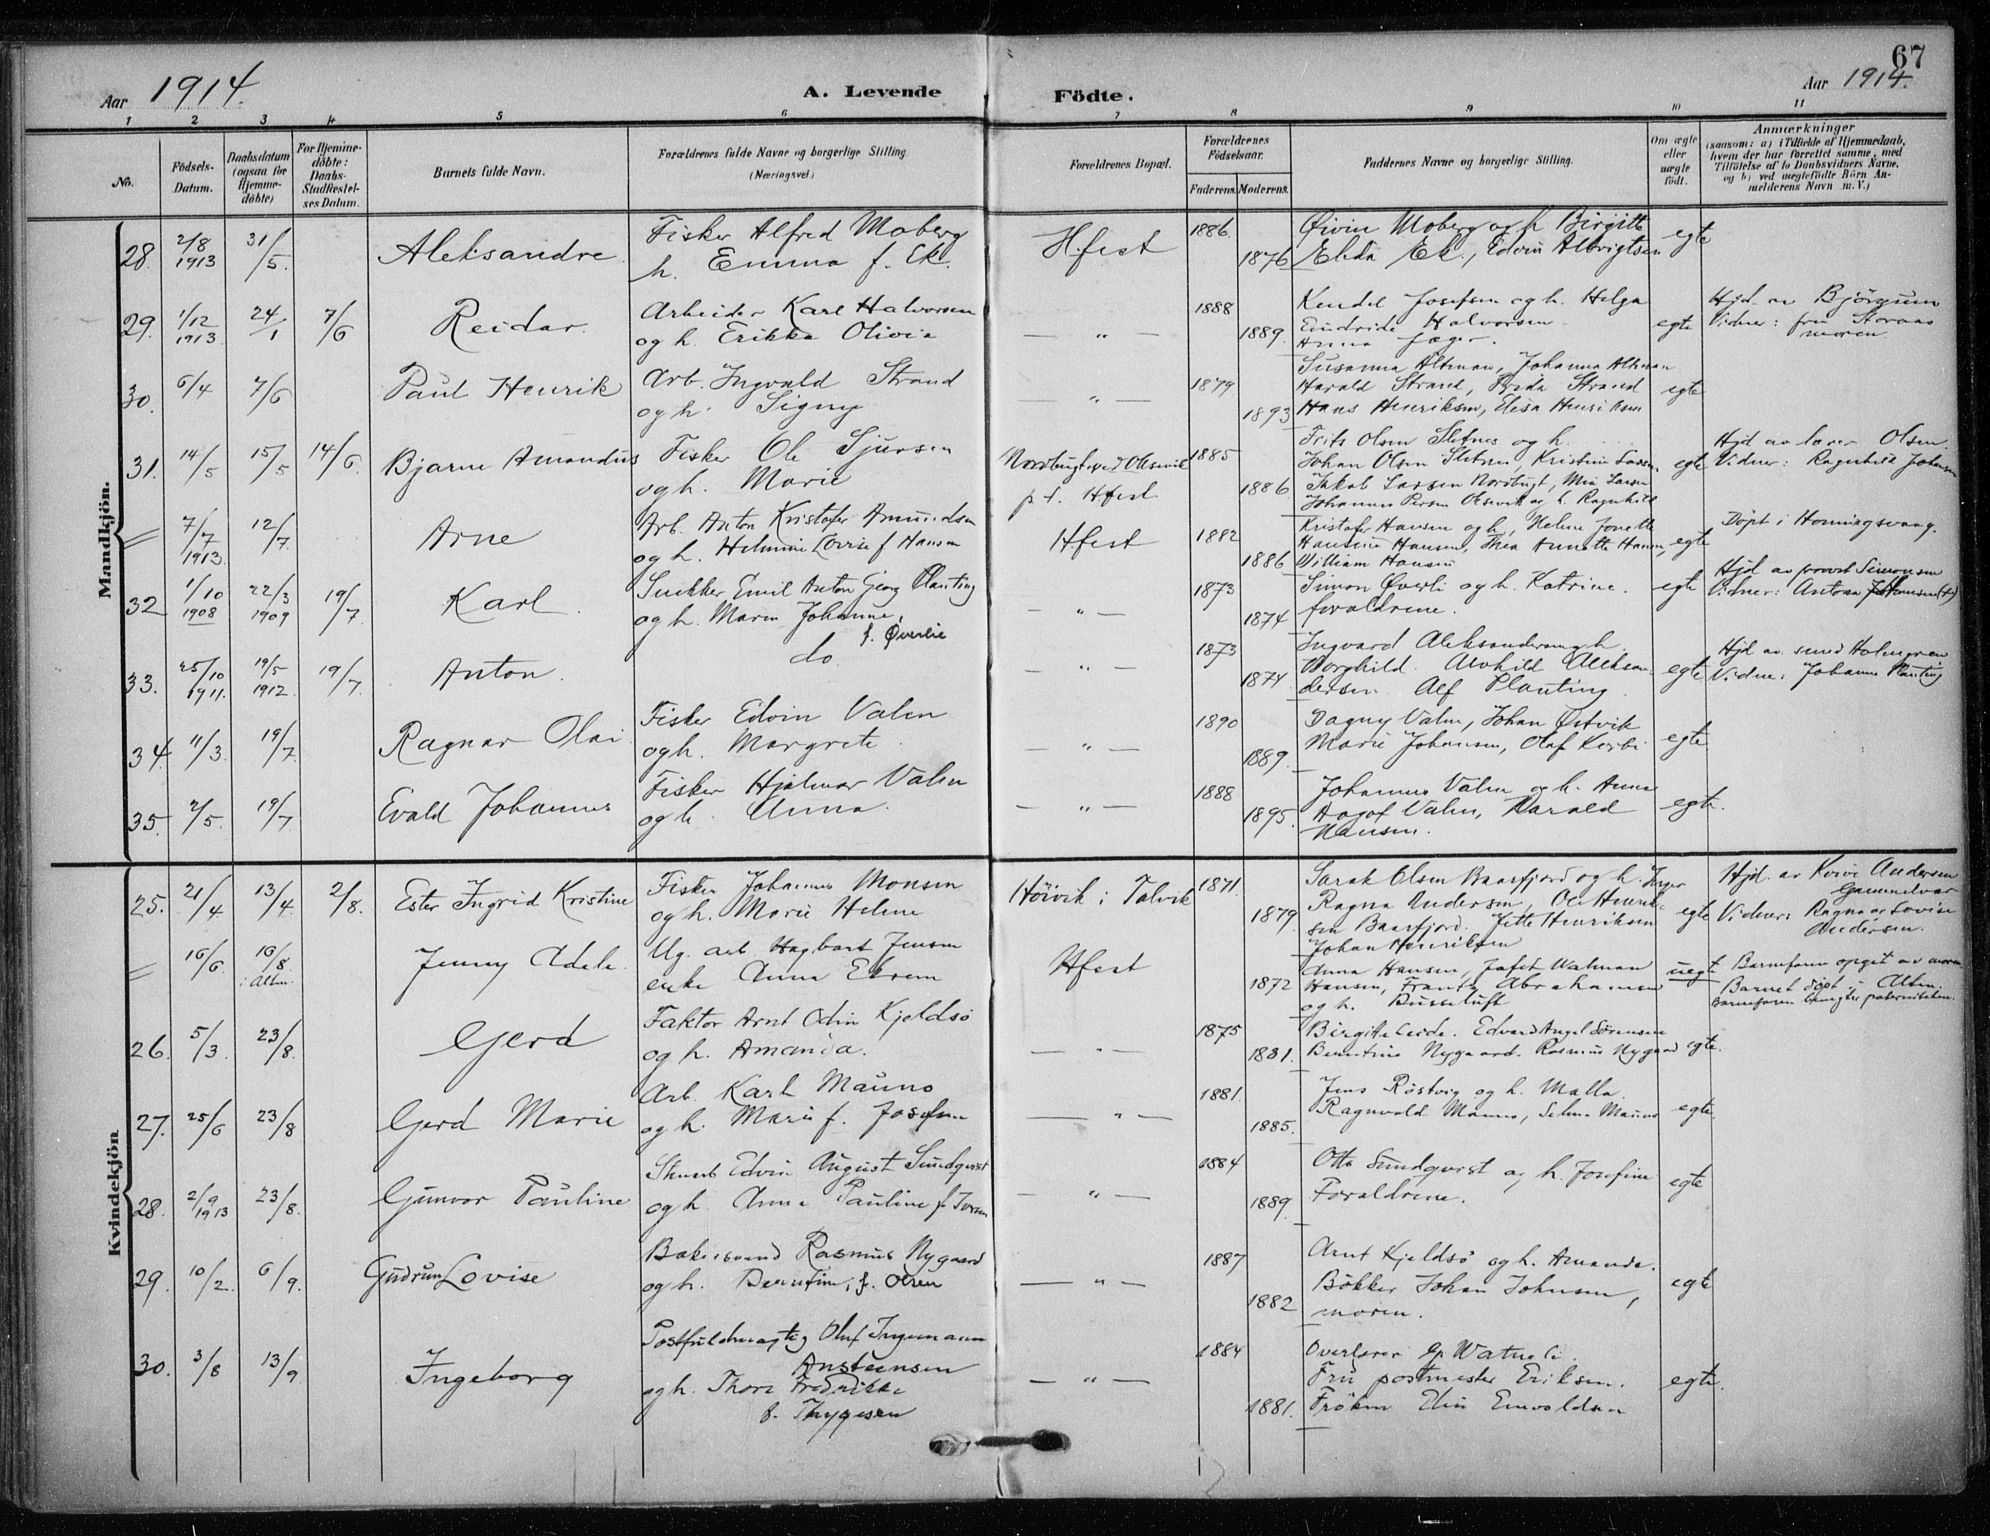 67
Aar 1914. A. Levende Födte. Aar 1914.
1 2 3 4 5 6 7 8 9 10 11
No.
Födsels-Datum.
Daabsdatum (ogsaa for Hjemmedöbte)
For Hjemmedöbte: Daabs-Stadfæstelses Datum.
Barnets fulde Navn.
Forældrenes fulde Navne og borgerlige Stilling.
(Næringsvei.)
Forældrenes Bopæl.
Forældrenes Födselsaar.
Faderens. Moderens.
Faddernes Navne og borgerlige Stilling.
Om ægte eller uægte födt.
Anmærkninger
(saasom: a) i Tilfælde af Hjemmedaab, hvem der har forrettet samme, med Tilföielse af to Daabsvidners Navne, og b) ved uegtefödte Börn Anmelderens Navn m. V.)
Mandkjön.
28. 2/8 1913 31/5. Aleksandre. Fisker Alfred Moberg
h. Emma f. Ek. Hfest 1886. 1876 Øivin Moberg og h. Birgitte
Elida Ek., Edvin Albrigtsen egte
29. 1/12 1913. 24/1 7/6 Reidar. Arbeider Karl Halvorsen
og h. Erikka Olivia — " — 1888 1889. Kendel Josefsen og h. Helga
Eindride Halvorsen
Anna Jæger. egte Hjd. av Björgum
Vidner: fru Storaas
moren
30. 6/4 7/6 Paul Henrik Arb. Ingvald Strand
og h. Signy — " — 1879 1893 Susanna Altman, Johanna Altman
Harald Strand, Frida Strand
Hans Henriksen, Elisa Henriksen egte
31. 14/5 15/5 14/6. Bjarne Amandus Fisker Ole Sjursen
og h. Marie Nordbugt ved Olsevik
p t. Hfest 1885 1886. Frits Olsen Sletnes og h.
Johan Olsen Sletnes, Kristine Larsen
Jakob Larsen Nordbugt, Mia Larsen
Johannes Persen Olsevik og h. Ragnhild egte Hjd av lærer Olsen.
Vidner: Ragnhild Johansen
= 7/7 1913. 12/7. Arne Arb. Anton Kristofer Amundsen
og h. Helmine Lovise f Hansen Hfest 1882 1886 Kristofer Hansen og h, Helene Jonette
Hansine Hansen, Thea Annette Hansen,
William Hansen egte Döpt i Honningsvaag.
32 1/10 1908 22/3 1909 19/7. Karl. Snikker Emil Anton Georg Planting
og h. Maren Johanne,
f. Øverlie — " — 1873 1874 Simon Øverli og h. Katrine.
foraldrene. egte Hjd av provst Simonsen
Vidner: Antona Johansen (+)
33. 25/10 1911. 19/5 1912. 19/7. Anton. do — " — 1873 1874 Ingvard Aleksandersen og h.
Borghild. Alvhild Aleksan
dersen. Alf Planting. egte Hjd av smed Holmgren
Vidne: Johanne Planting
34. 11/3. 19/7. Ragnar Olai Fisker Edvin Valen
og h. Margrete. — " — 1890 1889. Dagny Valen, Johan Østvik
Marie Johansen, Olaf Kerbi egte
35. 2/5. 19/7 Evald Johannes Fisker Hjalmar Valen
og h. Anna. — " — 1888 1895. Johannes Valen og h. Anna
Aagot Valen, Harald
Hansen. egte.
Kvindekjön
25. 21/4 13/4. 2/8. Ester Ingrid Kristine Fisker Johannes Monsen
og h. Marie Helene Höivik i Talvik 1871. 1879. Sarah Olsen Baarfjord og h. Jørger
Ragna Andersen, Ole Henrik-
sen Baarfjord. Jette Henriksen
Johan Henriksen egte Hjd. av Kvive Andersen
Gammelvær
Vidner: Ragna og Lovise
Andersen.
= 16/6. 16/8 i Alten. Jenny Adele. Ug. arb. Hagbart Jensen
enke Anna Ekrem Hfest 1872 Anna Hansen, Jafet Walman
Hansen, Frantz Abrahamsen
og h. Busseluft uegt Barnefaren opget av moren.
Barnet döpt i Alten.
Barnefaren benegter paterniteten.
26. 5/3. 23/8. Gerd Faktor Arnt Odin Kjeldsö
og h. Amanda. — " — 1875 1881. Birgite Eide. Edvard Angel Sörensen
Berentine Nygaard. Rasmus Nygaard egte.
27. 25/6 23/8 Gerd Marie Arb. Karl Mauno
og h. Marie f. Josefsen — " — 1881. 1885. Jens Röstvig og h. Malla.
Ragnvald Mauno, Selma Mauno egte.
28. 2/9 1913 23/8. Gunvor Pauline Edvin August Sundqvist
og h. Anna Pauline f. Iversen — " — 1884 1889. Otto Sundqvist og h. Josefine
Foraldrene. egte
29. 10/2. 6/9. Gudrun Lovise Bakersvend Rasmus Nygaard
og h. Berentine, f. Olsen — " — 1887 1882 Arnt Kjeldsö og h. Amanda.
Bökker Johan Johnsen,
moren. egte
30. 3/8 13/9 Ingeborg Postfuldmægtig Oluf Ingemann
Ansteensen
og h. Thora Fredrikke
f. Thygesen — " — 1884 1881. Overlærer Watne
Fru postmester Eriksen.
Fröken Elin Envoldsen egte.